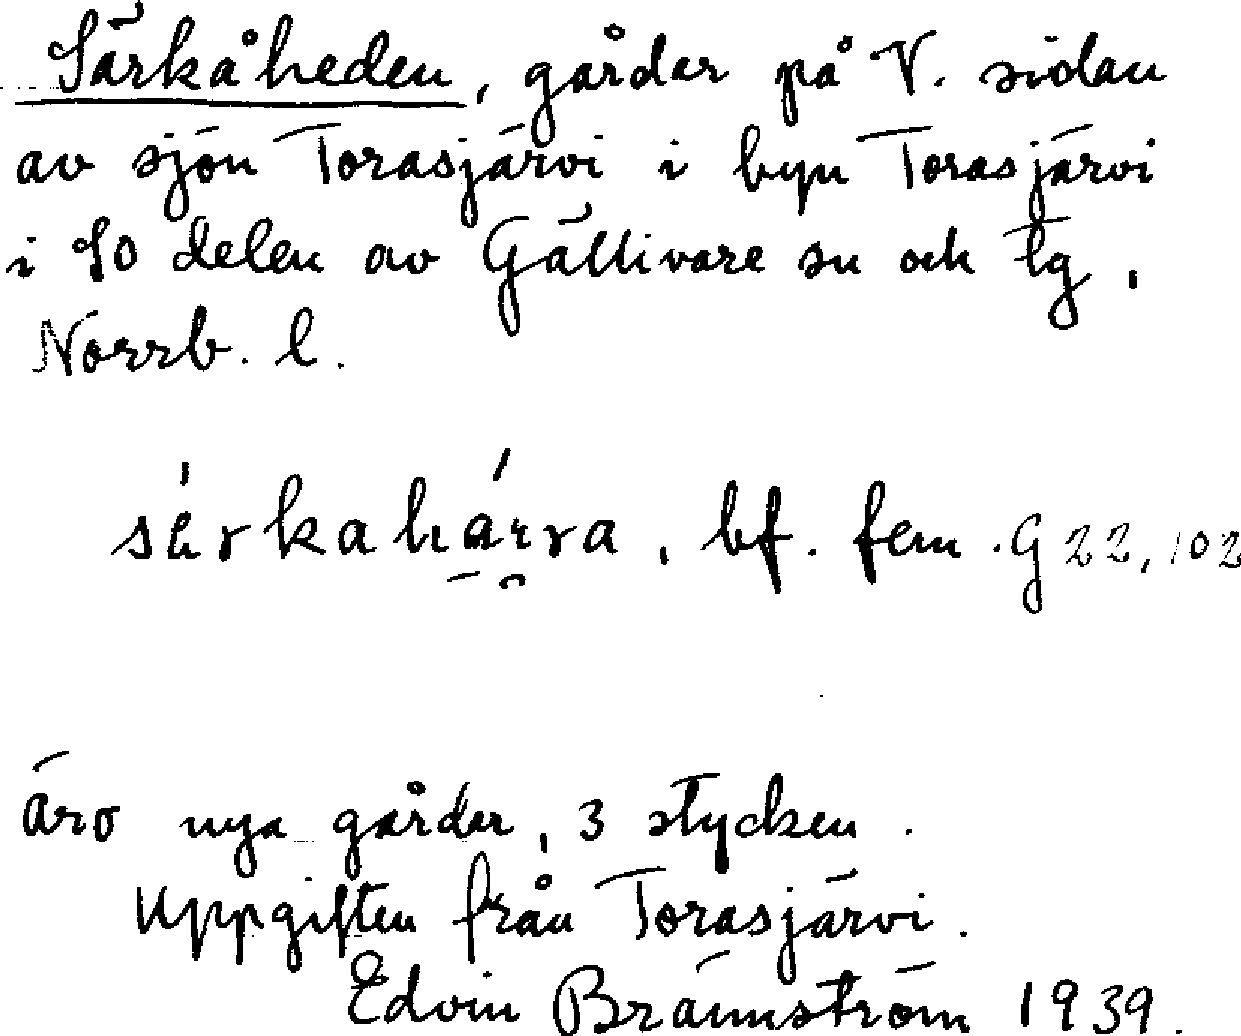 Särkåheden, gårdar på V. sidan
av sjön Torasjärvi i byn Torasjärvi
i SO delen av Gällivare sn och tg,
Norrb. l.
bf. fem. G 22, 102
äro nya gårdar, 3 stycken.
Uppgiften från Torasjärvi.
Edvin Brännström 1939.